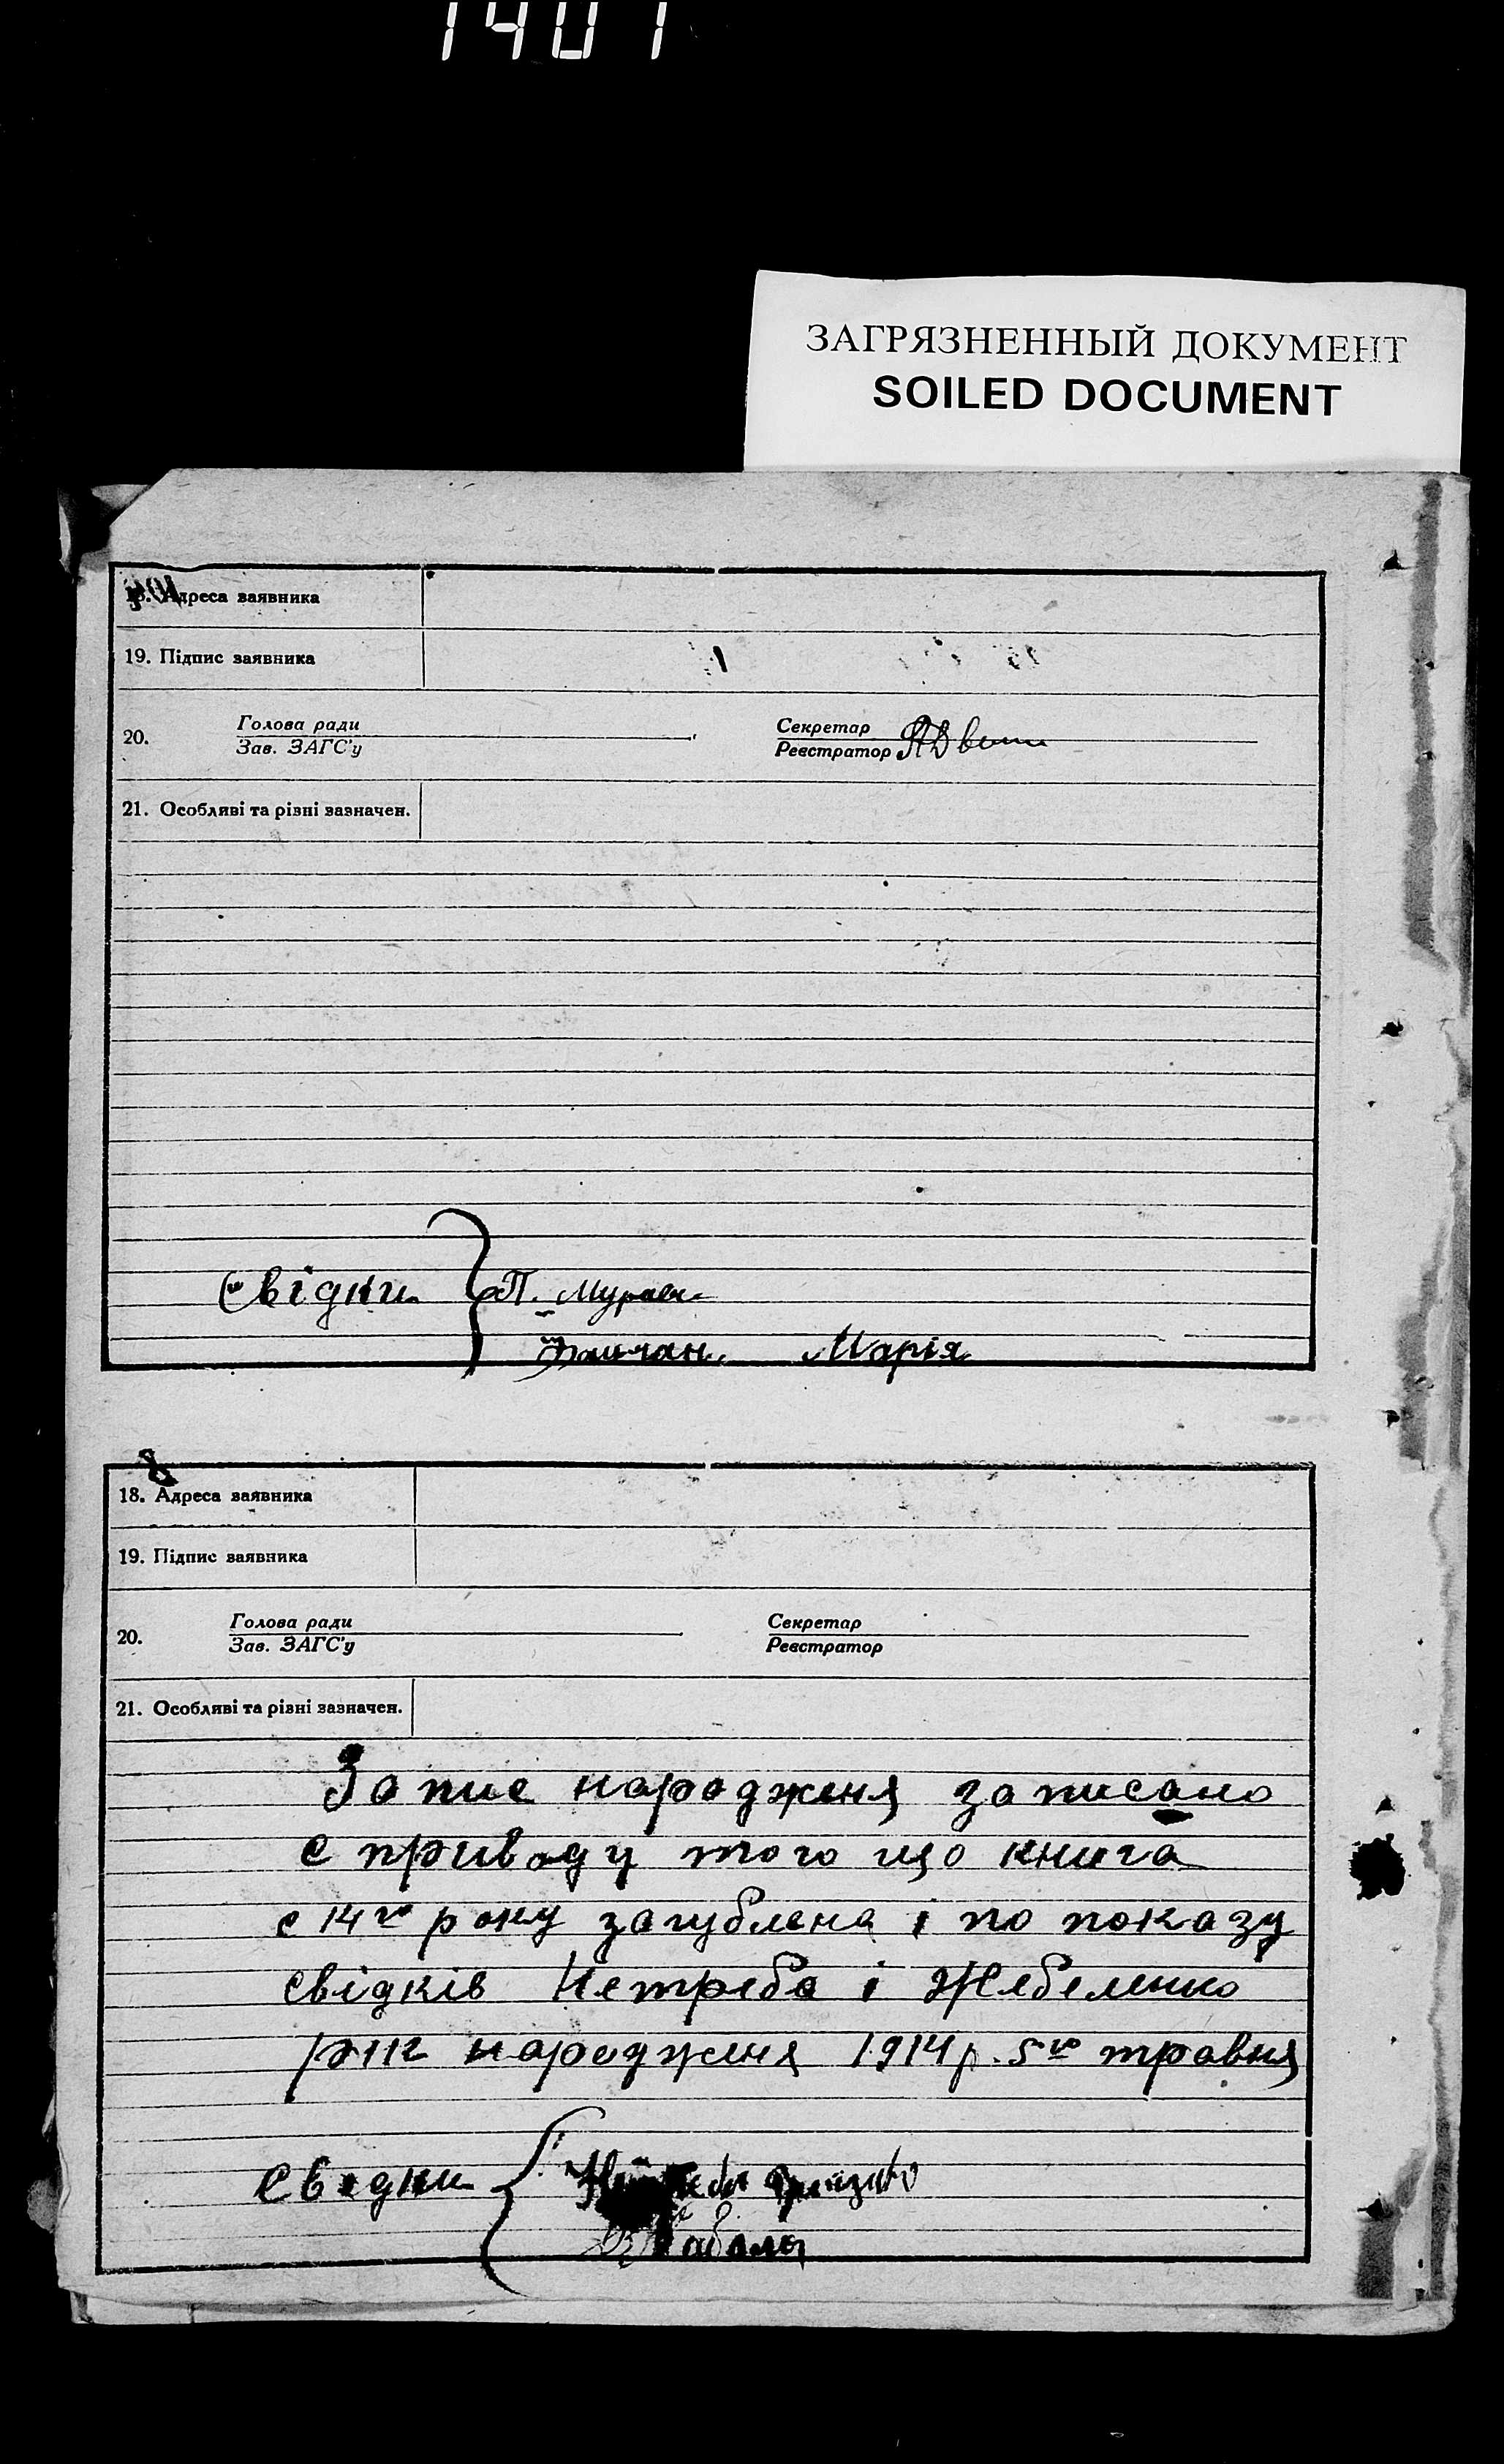 1401
ЗАГРЯЗНЕННЫЙ ДОКУМЕНТ
SOILED DOCUMENT
18. Адреса заявника
19. Підпис заявника
20. Голова ради Секретар
Зав. ЗАГС'у Реєстратор
21. Особливі та рівні зазначен.
Свідки П.
Марія
18. Адреса заявника
19. Підпис заявника
20. Голова ради Секретар
Зав. ЗАГС'у Реєстратор
21. Особливі та рівні зазначен.
Запис народженя записано
с приводу того що книга
с 14го року загублена і по показу
свідків Нетреба і Жебеленко
рік народженя 1914 р. 5го травня
Свідки